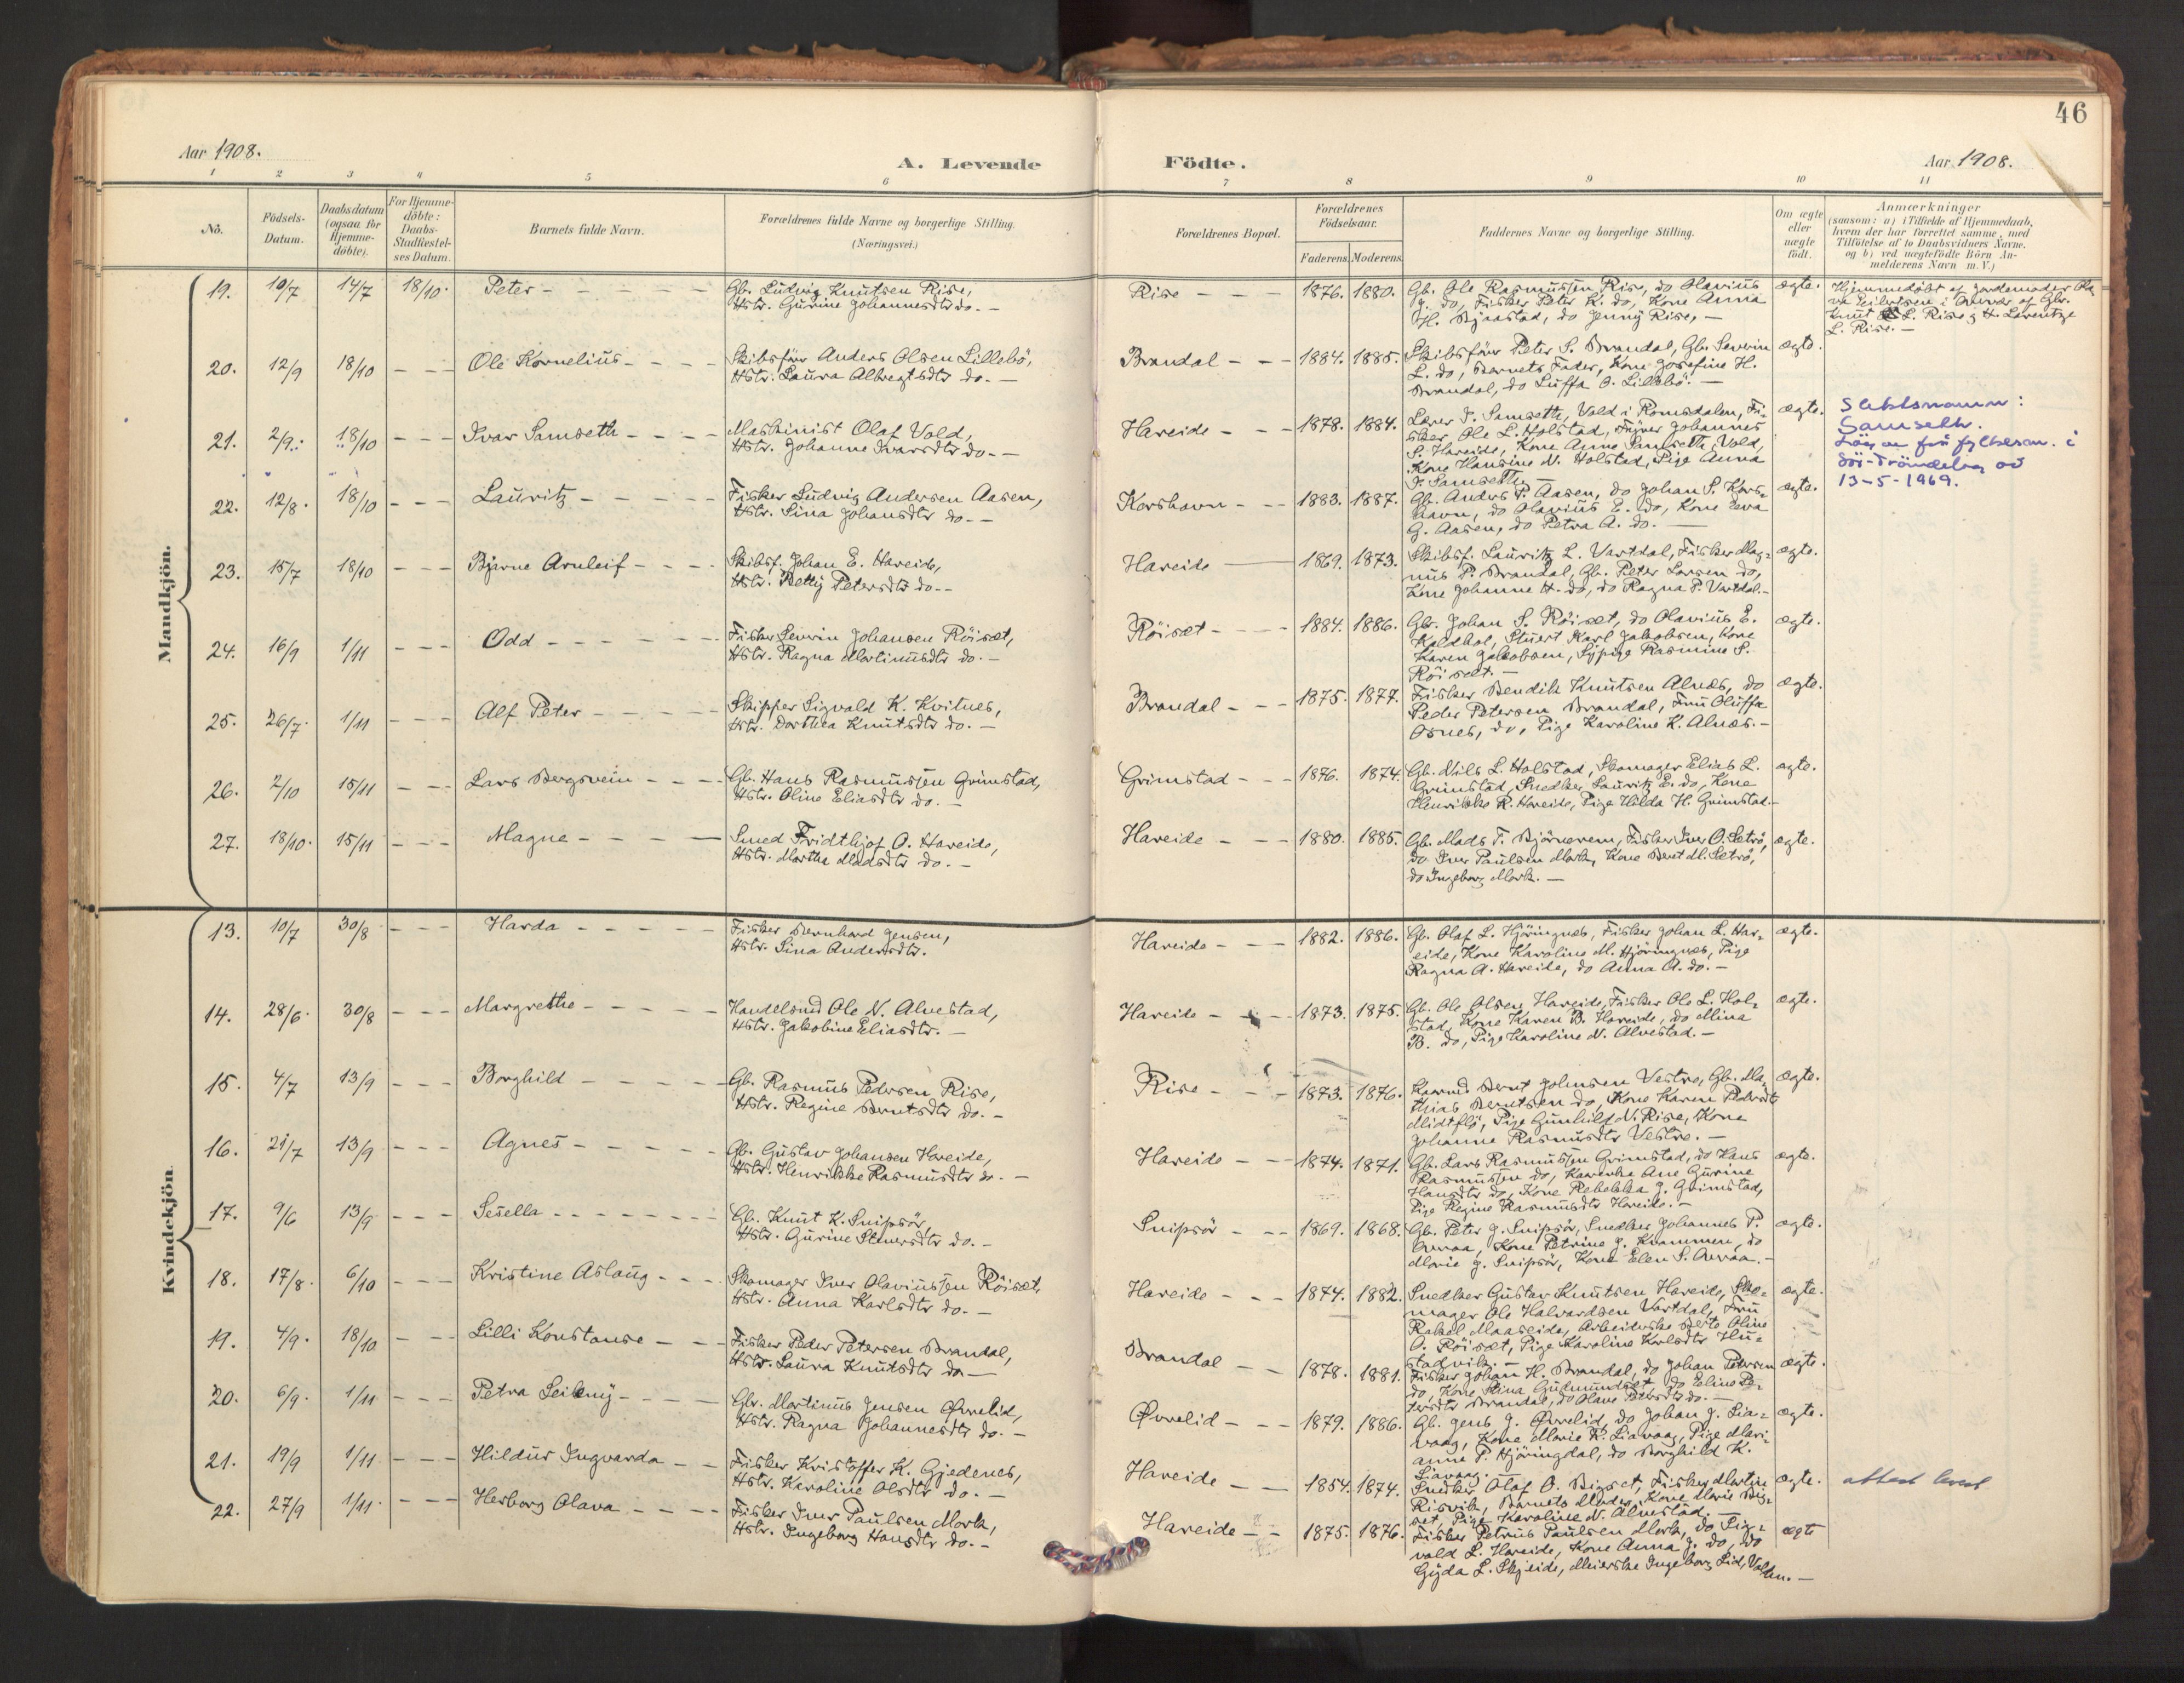 46
Aar 1908.
A. Levende
Födte.
Aar 1908.
1 2 3 4 5 6 7 8 9 10 11
No.
Födsels-Datum.
Daabsdatum (ogsaa for Hjemme-döbte).
For Hjemme-döbte: Daabs-Stadfæstel-ses Datum.
Barnets fulde Navn.
Forældrenes fulde Navne og borgerlige Stilling.
(Næringsvei.)
Forældrenes Bopæl.
Forældrenes Födselsaar.
Faderens. Moderens.
Faddernes Navne og borgerlige Stilling.
Om ægte eller uægte födt.
Anmærkninger
(saasom: a) i Tilfælde af Hjemmedaab,
hvem der har forrettet samme, med
Tilföielse af to Daabsvidners Navne.
og b) ved uægtefödte Börn An-
melderens Navn m. V.)
Mandkjön.
19. 10/7 14/7 18/10. Peter - - - - -
Gb. Ludvig Knutsen Rise,
Hstr. Gurine Johannesdtr do. -
Rise - - - 1876. 1880.
Gb. Ole Rasmussen Rise, do Olavius
J. do, Fisker Peter K. do, Kone Anna
H. Bjaastad, do Jenny Rise, -
ægte.
Hjemmedöbt af Jordemoder
Knut L. Rise g H. Lorentze
L. Rise. -
20. 12/9 18/10 - - - Ole Kornelius - - - -
Skibsförer Anders Olsen Lillebö,
Hstr. Laura Albregtsdtr do. -
Brandal - - - 1884. 1885.
Skibsförer Peter S. Brandal, Gb. Severin
L. do, Barnets Fader, Kone Josefine H.
Brandal, do Luffa O. Lillebö. -
ægte.
21. 2/9. 18/10 - - - Ivar Samseth - - - -
Maskinist Olaf Vold,
Hstr. Johanne Ivarsdtr do. -
Hareide - - - 1878. 1884.
Lærer I. Samseth, Vold i Romsdalen, Fi-
sker Ole L. Holstad, Förer Johannes
S. Hareide, Kone Anne Samseth, Vold,
Kone Hansine N. Holstad, Pige Anna
I. Samseth. -
ægte.
Slektsnamn:
Samseth.
fylkesm. i
Sör-Tröndelag av
13-5-1969.
22. 12/8. 18/10 - - - Lauritz - - - - -
Fisker Ludvig Andersen Aasen,
Hstr. Sina Johansdtr do. -
Korshavn - - - 1883. 1887.
Gb. Anders P. Aasen, do Johan S. Kors-
havn, do Olavius E. do, Kone Eva
G. Aasen, do Petra A. do. -
ægte.
23. 15/7 18/10 - - - Bjarne Arnleif - - - -
Skibsf. Johan E. Hareide,
Hstr. Betty Petersdtr do. -
Hareide - 1869. 1873.
Skibsf. Lauritz L. Vartdal, Fisker Mag-
nus P. Brandal, Gb. Peter Larsen do,
Kone Johanne H. do, do Ragna P. Vartdal. -
ægte.
24. 16/9 1/11 - - - Odd - - - - - -
Fisker Severin Johansen Röiset,
Hstr. Ragna Martinusdtr do. -
Röiset - - - 1884. 1886.
Gbr. Johan S. Röiset, do Olavius E.
Kaldhol, Stuert Karl Jakobsen, Kone
Karen Jakobsen, Sypige Rasmine S.
Röiset. -
ægte.
25. 26/7. 1/11 - - - Alf Peter - - - - -
Skipper Sigvald K. Kvitnes,
Hstr. Dorthea Knutsdtr do. -
Brandal - - - 1875. 1877.
Fisker Bendik Knutsen Alnæs, do
Peder Petersen Brandal, Fru Oluffa
Osnes, do, Pige Karoline K. Alnæs. -
ægte.
26. 2/10 15/11 - - - Lars Bergsvein - - - -
Gb. Hans Rasmussen Grimstad,
Hstr. Oline Eliasdtr do. -
Grimstad - - - 1876. 1874.
Gb. Nils L. Holstad, Skomager Elias L.
Grimstad, Snedker Lauritz E. do, Kone
Henrikke R. Hareide, Pige Hilda H. Grimstad. -
ægte.
27. 18/10. 15/11 - - - Magne - - - -
Smed Fridthjof O. Hareide,
Hstr. Marthe Madsdtr do. -
Hareide - - - 1880. 1885.
Gb. Mads T. Björnerem, Fisker Iver O. Setrö,
do Iver Paulsen Mork, Kone Berit M. Setrö,
do Ingeborg Mork. -
ægte.
Kvindekjön.
13. 10/7 30/8 - - - Harda - - - - -
Fisker Bernhard Jensen,
Hstr. Sina Andersdtr.
Hareide - - - 1882. 1886.
Gb. Olaf L. Hjöringnes, Fisker Johan L. Har-
eide, Kone Karoline M. Hjöringnes, Pige
Ragna A. Hareide, do Anna A. do. -
ægte.
14. 28/6. 30/8 - - - Margrethe - - - - -
Handelsmd Ole N. Alvestad,
Hstr. Jakobine Eliasdtr. -
Hareide - - - 1873. 1875.
Gb. Ole Olsen Hareide, Fisker Ole L. Hol-
stad, Kone Karen B. Hareide, do Mina
B. do, Pige Karoline N. Alvestad. -
ægte.
15. 4/7 13/9 - - - Borghild - - - - -
Gb. Rasmus Pedersen Rise,
Hstr. Regine Berntsdtr do. -
Rise - - - 1873. 1876.
Kaarmd Bernt Johnsen Vestre, Gb. Ma-
thias Berntsen do, Kone Karen Pedersdtr
Midtflö, Pige Gunhild N. Rise, Kone
Johanne Rasmusdtr Vestre. -
ægte.
16. 21/7 13/9 - - - Agnes - - - - -
Gb. Gustav Johansen Hareide,
Hstr. Henrikke Rasmusdtr do. -
Hareide - - - 1874. 1871.
Gb. Lars Rasmussen Grimstad, do Hans
Rasmussen do, Kaarenke Ane Gurine
Hansdtr do, Kone Rebekka J. Grimstad,
Pige Regine Rasmusdtr Hareide. -
ægte.
17. 9/6 13/9 - - - Sesella - - - - - -
Gb. Knut K. Snipsör,
Hstr. Gurine Steinersdtr do. -
Snipsör - - - 1869. 1868.
Gb. Peter J. Snipsör, Snedker Johannes P.
Overaa, Kone Petrine J. Krammen, do
Marie J. Snipsör, Kone Elen S. Overaa. -
ægte.
18. 17/8. 6/10 - - - Kristine Aslaug - - - -
Skomager Iver Olaviussen Röiset,
Hstr. Anna Karlsdtr do. -
Hareide - - - 1874. 1882.
Snedker Gustav Knutsen Hareide, Sko-
mager Ole Halvardsen Vartdal, Fru
Rakel Maaseide, Arbeiderske Berte Oline
O. Röiset, Pige Karoline Karlsdtr Hu-
stadvik. -
ægte.
19. 4/9. 18/10 - - - Lilli Konstanse - - -
Fisker Peder Petersen Brandal,
Hstr. Laura Knutsdtr do -
Brandal - - 1878. 1881.
Fisker Johan H. Brandal, do Johan Petersen
do, Kone Stina Gudmundsdt, do Eline Pe-
tersdtr Brandal, do Olave Petersdtr do. -
ægte.
20. 6/9. 1/11 - - - Petra Leikny - - - -
Gbr. Martinus Jensen Øvrelid,
Hstr. Ragna Johannesdtr do. -
Øvrelid - - - 1879. 1886.
Gb. Jens J. Øvrelid, do Johan J. Lia-
vaag, Kone Marie K. Liavaag, Pige Mari-
anne P. Hjöringdal, do Borghild K.
Liavaag. -
ægte.
21. 19/9 1/11 - - - Hildur Ingvarda - -
Fisker Kristoffer K. Gjedenes,
Hstr. Karoline Olsdtr do. -
Hareide - - 1854. 1874.
Snedker Olaf O. Bigset, Fisker Martin
Risvik, Barnets Moder, Kone Marie Big-
set, Pige Karoline N. Alvestad. -
ægte.
attest levert
22. 27/9 1/11. - - - Herborg Olava - - - -
Fisker Iver Paulsen Mork,
Hstr. Ingeborg Hansdtr do. -
Hareide - - 1875. 1876.
Fisker Petrus Paulsen Mork, do Sig-
vald L. Hareide, Kone Anna J. do, do
Gyda L. Skjeide, Meierske Ingeborg Lid, Volden. -
ægte